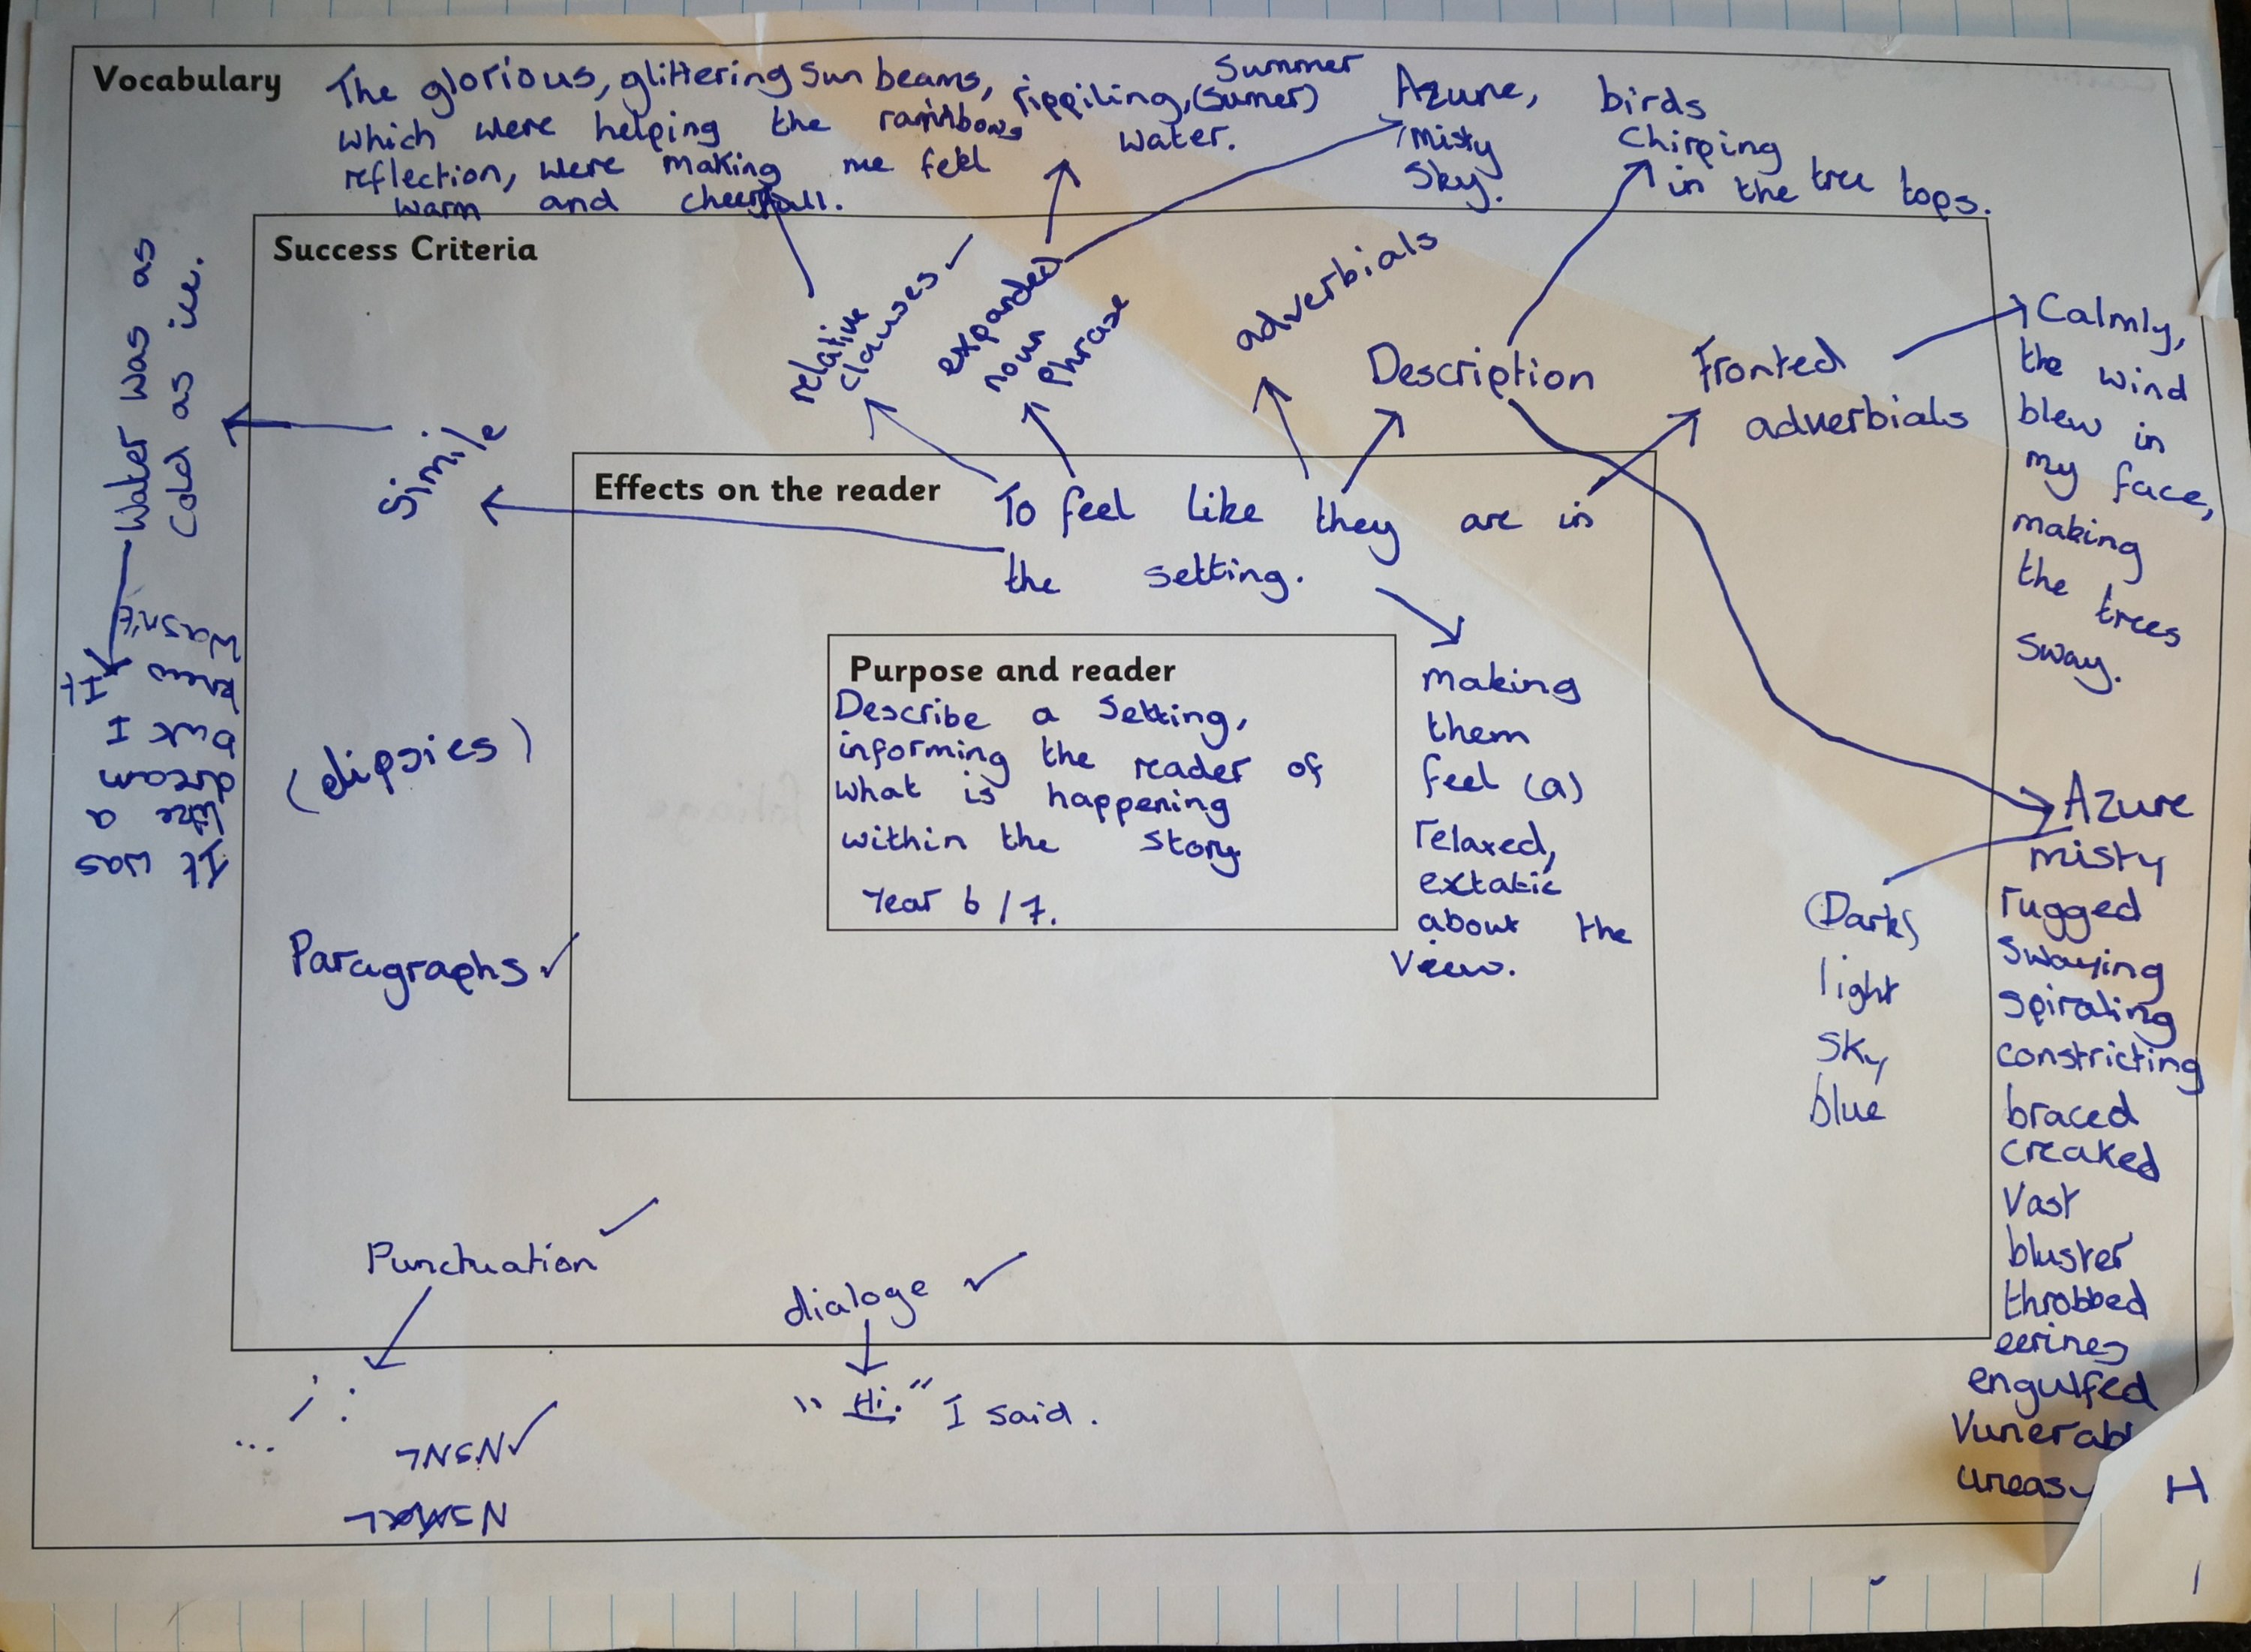 Vocabulary
The glorious, glittering sun beams,
which were helping the rainbows
reflection, were making me feel
warm and cheerfull.
rippiling, (Sumer)
Summer
water.
Azure,
misty
Sky.
birds
Chirping
in the tree tops.
Success Criteria
relative
clauses ✓
expanded
noun
phrase
adverbials
Description
Fronted
adverbials
Calmly,
the wind
blew in
my face,
making
the trees
sway.
Simile
Water was as
Cold as ice.
It was
like a
dream
but I
knew It
wasn't
Effects on the reader
To feel like they are in
the setting.
making
them
feel (a)
relaxed,
extatic
about the
View.
Purpose and reader
Describe a Setting,
informing the reader of
what is happening
within the story
Year 6/7.
(elipsies)
Paragraphs ✓
Punctuation ✓
...
dialoge ✓
"Hi." I said.
(Dark)
light
Sky
blue
Azure
misty
rugged
Swaying
Spiraling
constricting
braced
creaked
Vast
bluster
throbbed
engulfed
uneasy
H